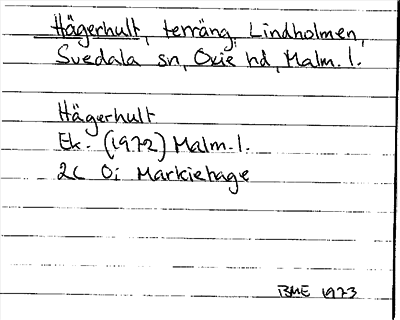 Hägerhult, terräng, Lindholmen,
Svedala sn, Oxie hd, Malm. l.
Hägerhult
Ek. (1972) Malm. l.
2C 0i Markiehage
BME 1973